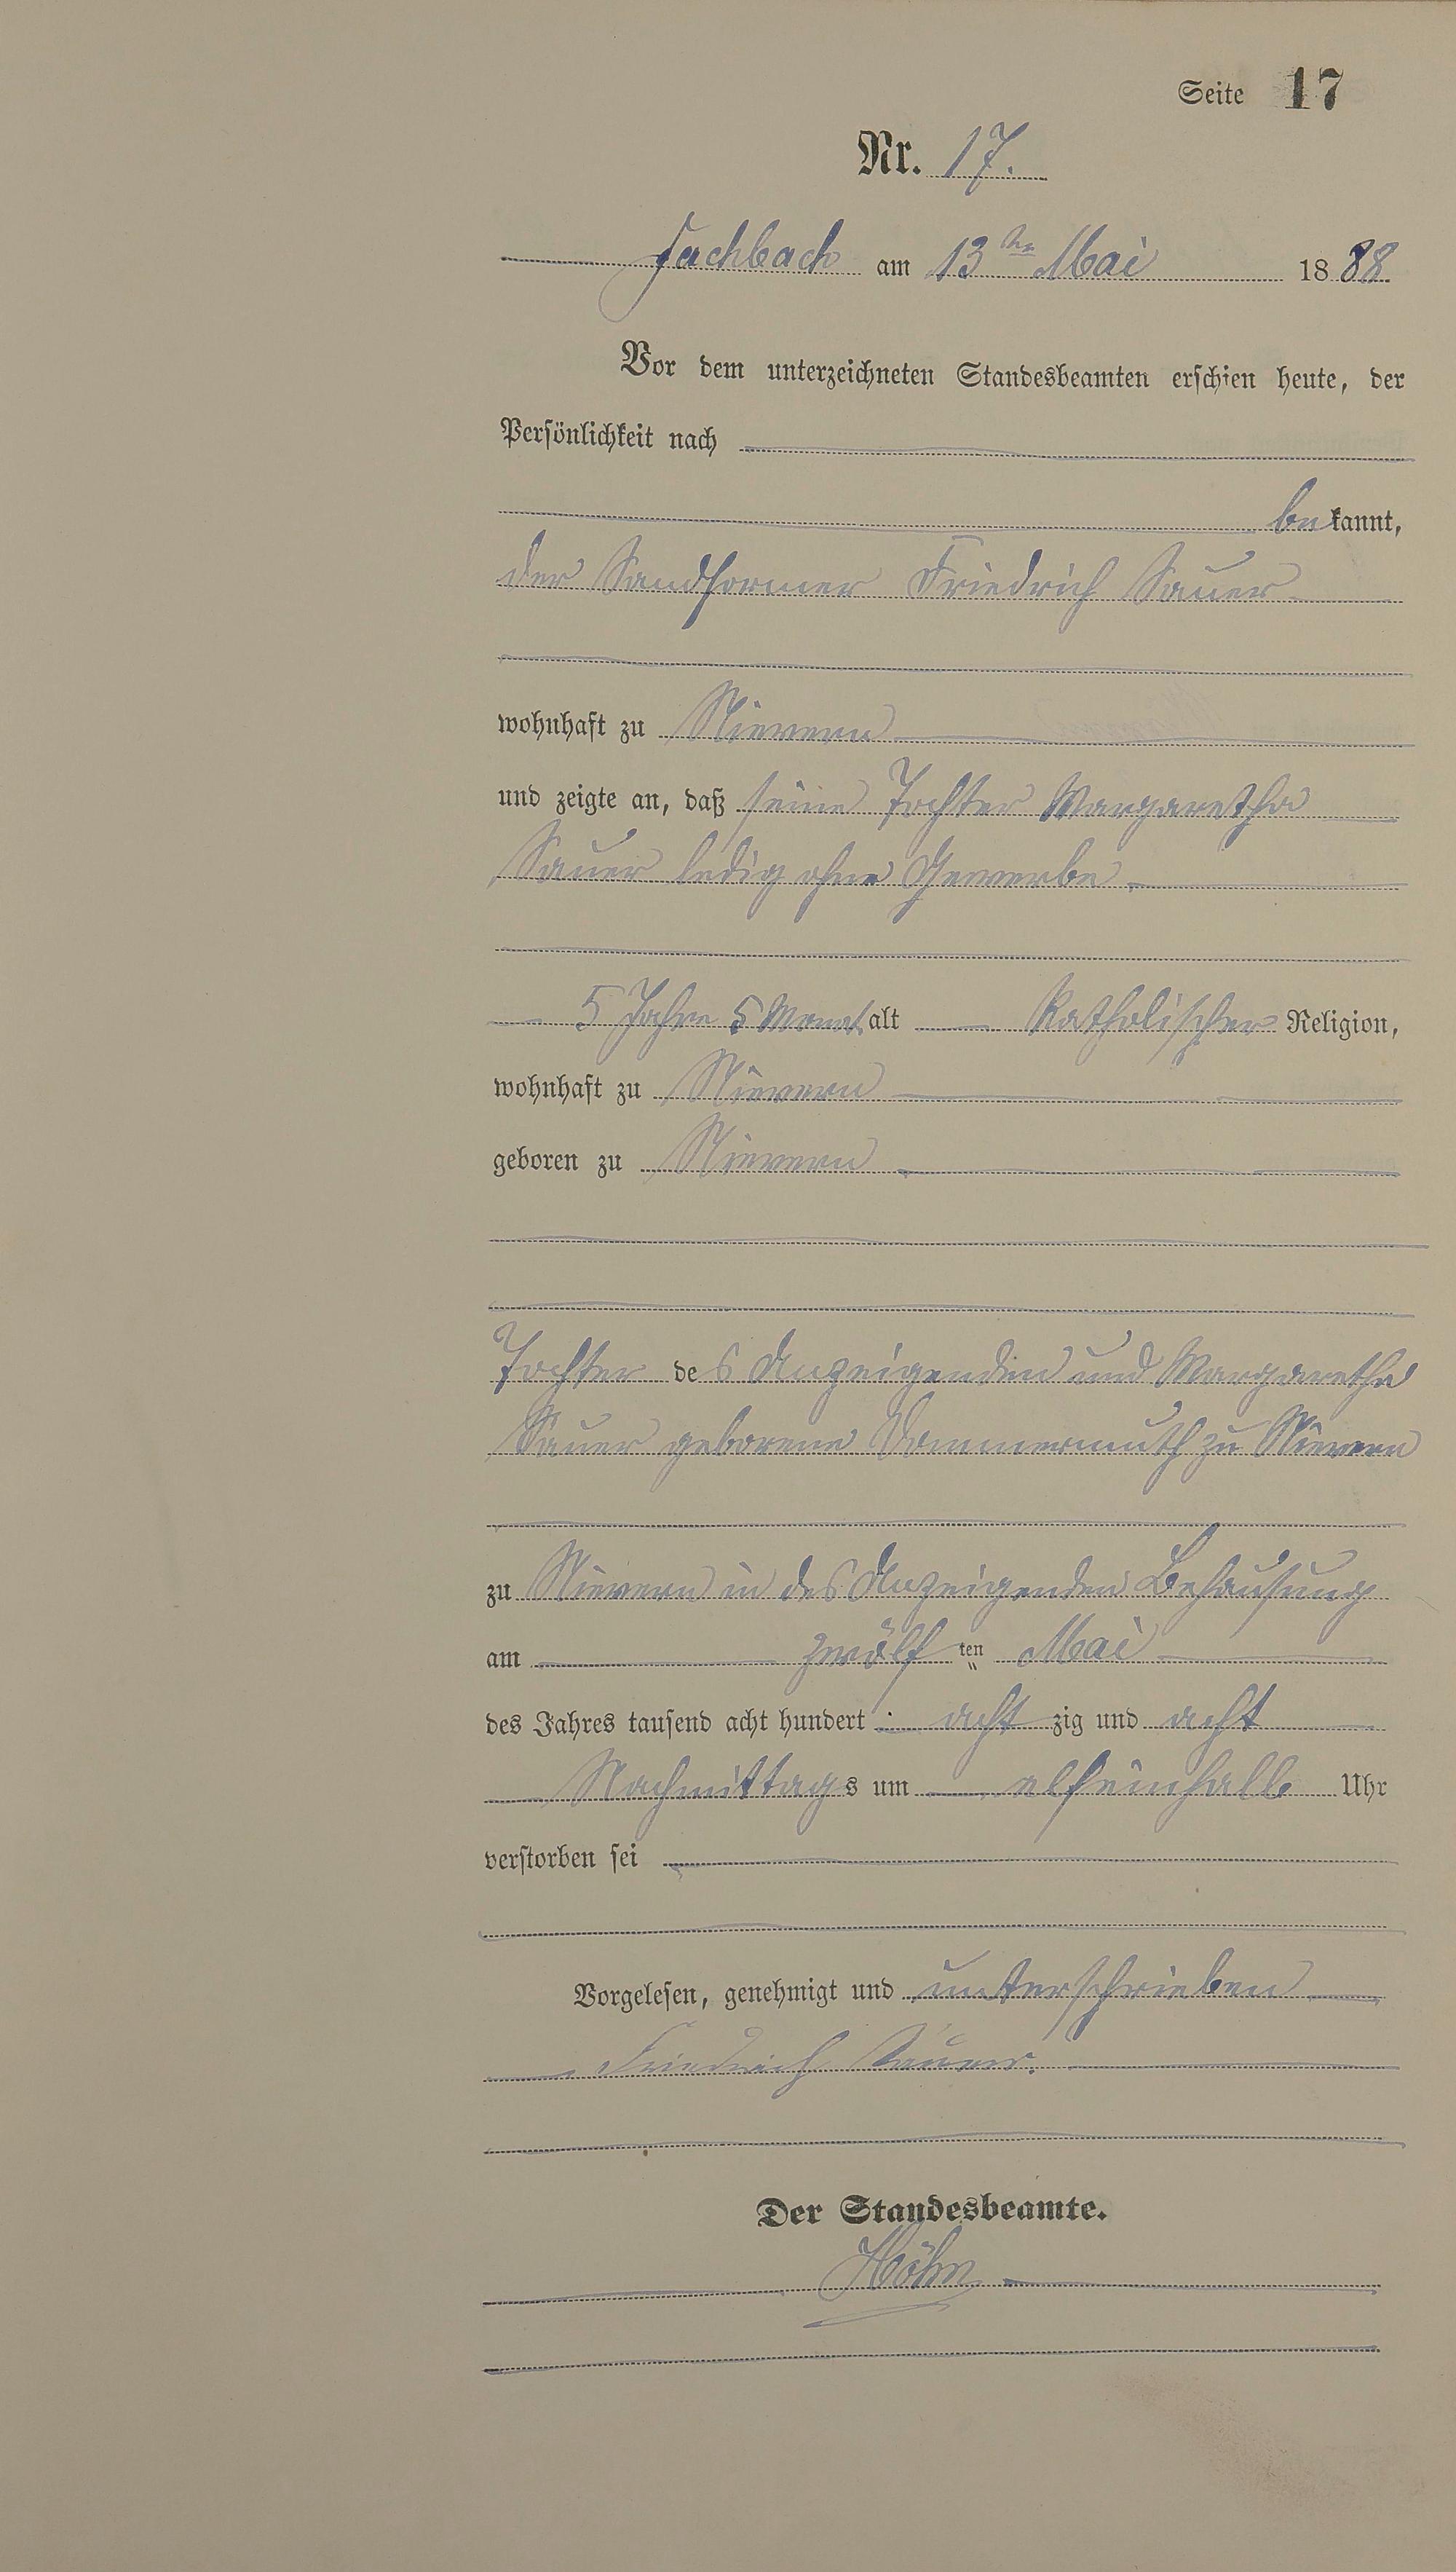 Seite 17
Nr. 17.
Fachbach am 13ten Mai 1888
Vor dem unterzeichneten Standesbeamten erschien heute, der
Persönlichkeit nach
bekannt,
der Sandformer Friedrich Sauer
wohnhaft zu Nievern
und zeigte an, daß seine Tochter Margaretha
Sauer ledig ohne Gewerbe
5 Jahre 5 Monat alt Katholischer Religion,
wohnhaft zu Nievern
geboren zu Nievern
Tochter des Anzeigenden und Margaretha
Sauer geborene Dommermuth zu Nievern
zu Nievern in des Anzeigenden Behausung
am zwölften Mai
des Jahres tausend acht hundert achtzig und acht
Nachmittags um elfeinhalb Uhr
verstorben sei
Vorgelesen, genehmigt und unterschrieben
Friedrich Sauer.
Der Standesbeamte.
Höhn